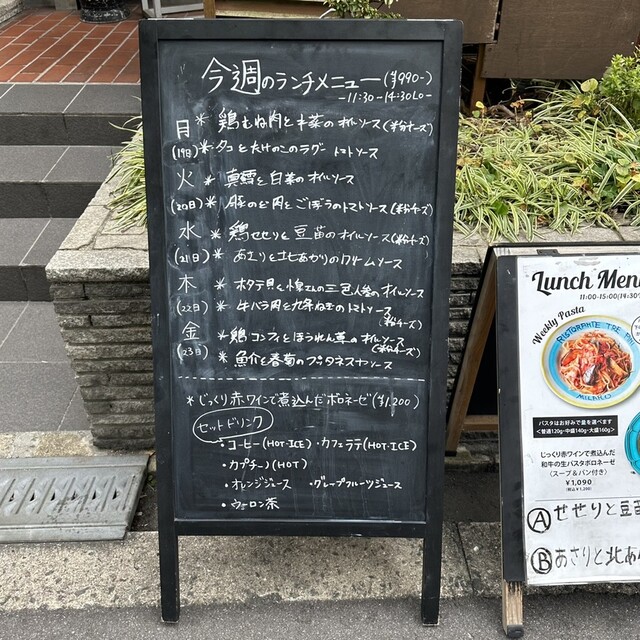 今週のランチメニュー(¥990-)
-11:30-14:30LO-
月 * 鶏むね肉と水菜のオイルソース(※粉チーズ)
(19日) * タコとたけのこのラグー トマトソース
火 * 真鱈と白菜のオイルソース
(20日) * 豚のど肉とごぼうのトマトソース(※粉チーズ)
水 * 鶏せせりと豆苗のオイルソース(※粉チーズ)
(21日) * あさりと北あかりのクリームソース
木 * ホタテ貝と小泉さんの三色人参のオイルソース
(22日) * 牛バラ肉と九条ねぎのトマトソース
(※粉チーズ)
金 * 鶏コンフィとほうれん草のオイルソース
(※粉チーズ)
(23日) * 魚介と春菊のプッタネスカソース
*じっくり赤ワインで煮込んだボロネーゼ(¥1,200)
セットドリンク
・コーヒー(HOT・ICE) ・カフェラテ(HOT・ICE)
・カプチーノ(HOT)
・オレンジジュース ・グレープフルーツジュース
・ウーロン茶
Lunch Men
11:00-15:00(14:30
Weekly Pasta
RISTORANTE TRE PINI
MILANO
パスタはお好みで量を選べます
<普通120g・中盛140g・大盛160g>
じっくり赤ワインで煮込んだ
和牛の生パスタボロネーゼ
(スープ&パン付き)
¥1,090
(税込¥1,200)
Ⓐ せせりと豆苗
Ⓑ あさりと北あ